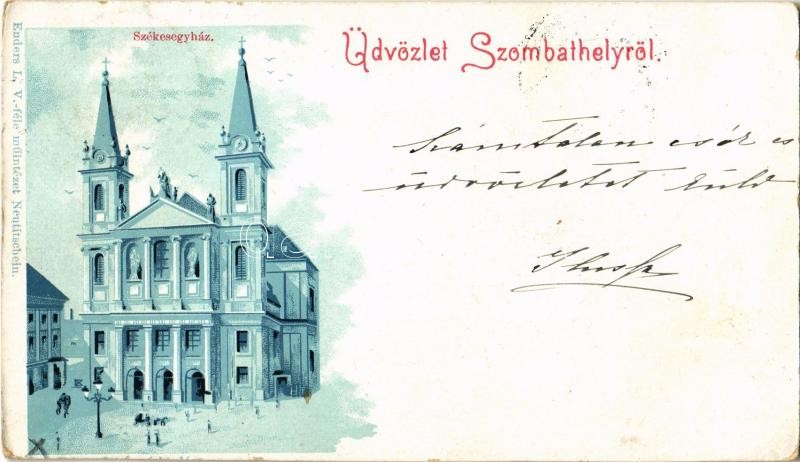 Székesegyház.
Üdvözlet Szombathelyről.
Számtalan csók és
üdvözletet küld
Enders L. V.-féle műintézet Neutitschein.